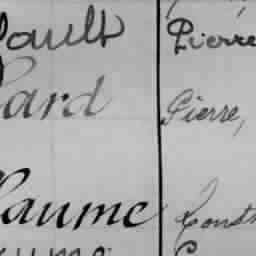 ault Pierre
ard Pierre,
aume Const
aume